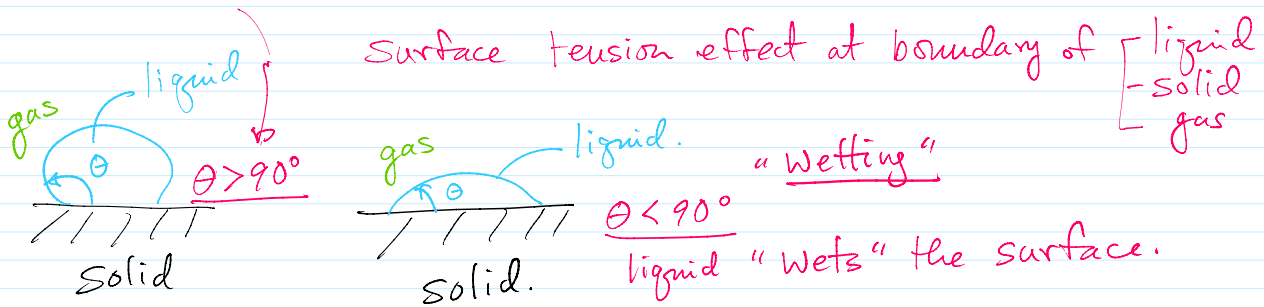 surface tension effect at boundary of
liquid
- solid
gas
gas
liquid
θ
θ>90°
solid
gas
liquid.
θ
solid.
"Wetting"
θ<90°
liquid "wets" the surface.